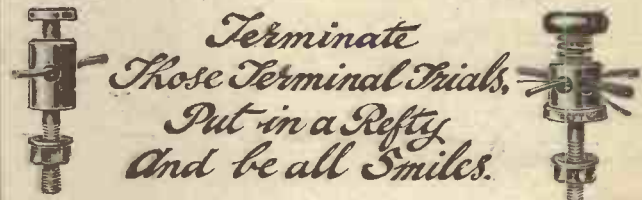 Terminate
Those Terminal Trials.
Put in a Refty
And be all Smiles.
REFTY